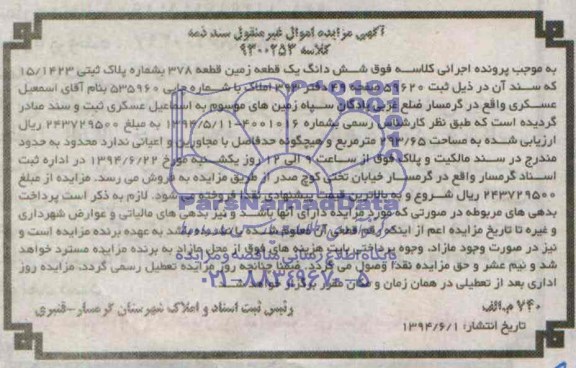 آگهی مزایده اموال غیرمنقول سند ذمه
کلاسه ۹۳۰۰۲۵۳
به موجب پرونده اجرائی کلاسه فوق شش دانگ یک قطعه زمین قطعه ۳۷۸ بشماره پلاک ثبتی ۱۵/۱۴۲۳
که سند آن در ذیل ثبت ۵۹۶۲۰ صفحه ۴۹ دفتر ۳۹۲ املاک با شماره چاپی ۵۳۵۹۶۰ بنام آقای اسمعیل
عسکری واقع در گرمسار ضلع غربی پادگان سپاه زمین های موسوم به اسماعیل عسکری ثبت و سند صادر
گردیده است که طبق نظر کارشناس رسمی بشماره ۴۰۰۱۰۱۶-۱۳۹۴/۵/۱۱ به مبلغ ۲۴۳۷۲۹۵۰۰ ریال
ارزیابی شده به مساحت ۲۹۳/۶۵ مترمربع و هیچگونه حدفاصل با مجاورین و اعیانی ندارد محدود به حدود
مندرج در سند مالکیت و پلاک فوق از ساعت ۹ الی ۱۲ روز یکشنبه مورخ ۱۳۹۴/۶/۲۲ در اداره ثبت
اسناد گرمسار واقع در گرمسار خیابان تختی کوچه صدر از طریق مزایده به فروش می رسد. مزایده از مبلغ
۲۴۳۷۲۹۵۰۰ ریال شروع و به بالاترین قیمت پیشنهادی نقدا فروخته می شود. لازم به ذکر است پرداخت
بدهی های مربوطه در صورتی که مورد مزایده دارای آنها باشد و نیز بدهی های مالیاتی و عوارض شهرداری
و غیره تا تاریخ مزایده اعم از اینکه رقم قطعی آن معلوم شده یا نشده باشد به عهده برنده مزایده است و
نیز در صورت وجود مازاد، وجوه پرداختی بابت هزینه های فوق از محل مازاد به برنده مزایده مسترد خواهد
شد و نیم عشر و حق مزایده نقدا وصول می گردد. ضمنا چنانچه روز مزایده تعطیل رسمی گردد، مزایده روز
اداری بعد از تعطیلی در همان زمان و مکان مقرر برگزار خواهد شد.
۷۴۰ م.الف
رئیس ثبت اسناد و املاک شهرستان گرمسار-قنبری
تاریخ انتشار: ۱۳۹۴/۶/۱
ParsNamadData
پایگاه اطلاع رسانی مناقصه و مزایده
۰۲۱-۸۸۳۴۹۶۷۰-۵